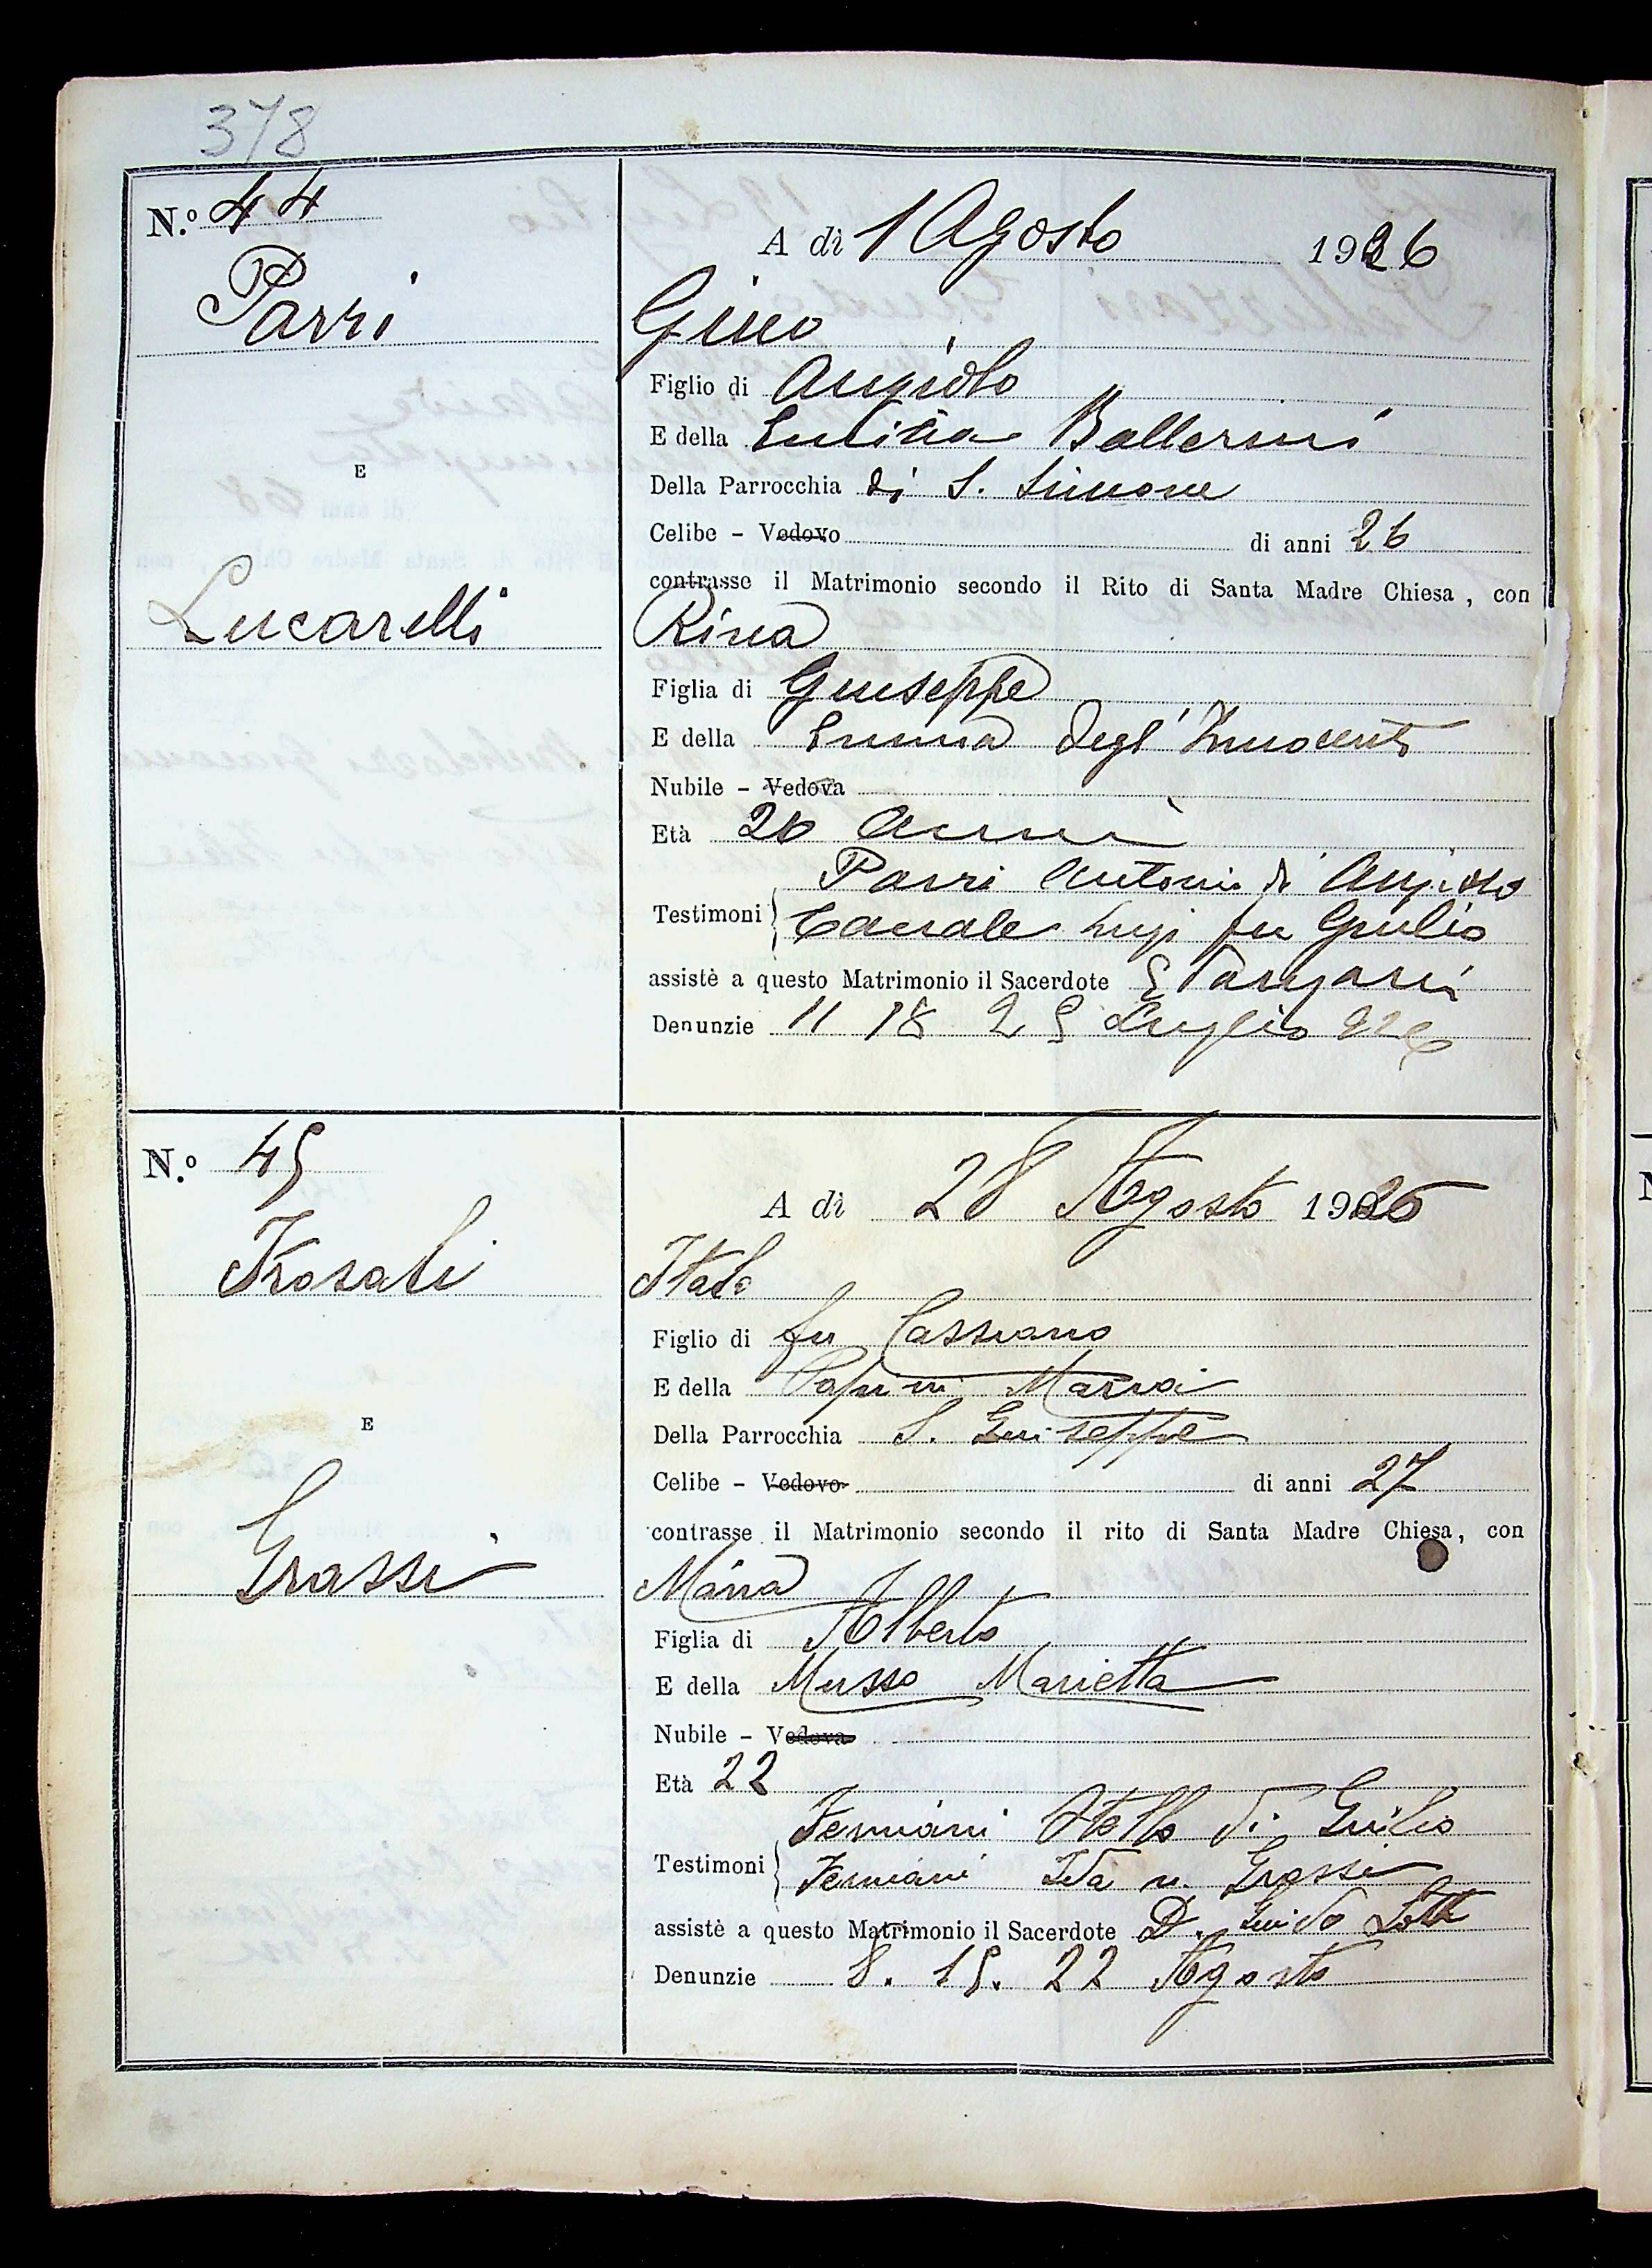 378
N.º 44
A dì 1 Agosto 1926
Parri
Gino
Figlio di Angiolo
E della Ballerini
Della Parrocchia di S. Simone
E
Celibe - Vedovo di anni 26
contrasse il Matrimonio secondo il Rito di Santa Madre Chiesa, con
Lucarelli
Rina
Figlia di Giuseppe
E della Emma Degl'Innocenti
Nubile - Vedova
Età 26 anni
Parri Antonio di Angiolo
Testimoni Luigi fu Giulio
assistè a questo Matrimonio il Sacerdote
Denunzie 11 18 25 Luglio
N.º 45
A dì 28 Agosto 1926
Italo
Figlio di fu Cassiano
E della Papini Maria
Della Parrocchia S. Giuseppe
E
Celibe - Vedovo di anni 27
contrasse il Matrimonio secondo il rito di Santa Madre Chiesa, con
Grassi
Maria
Figlia di Alberto
E della Musso Marietta
Nubile - Vedova
Età 22
di Giulio
Testimoni Ida n. Grassi
assistè a questo Matrimonio il Sacerdote D. Guido Lotti
Denunzie 8. 15. 22 Agosto